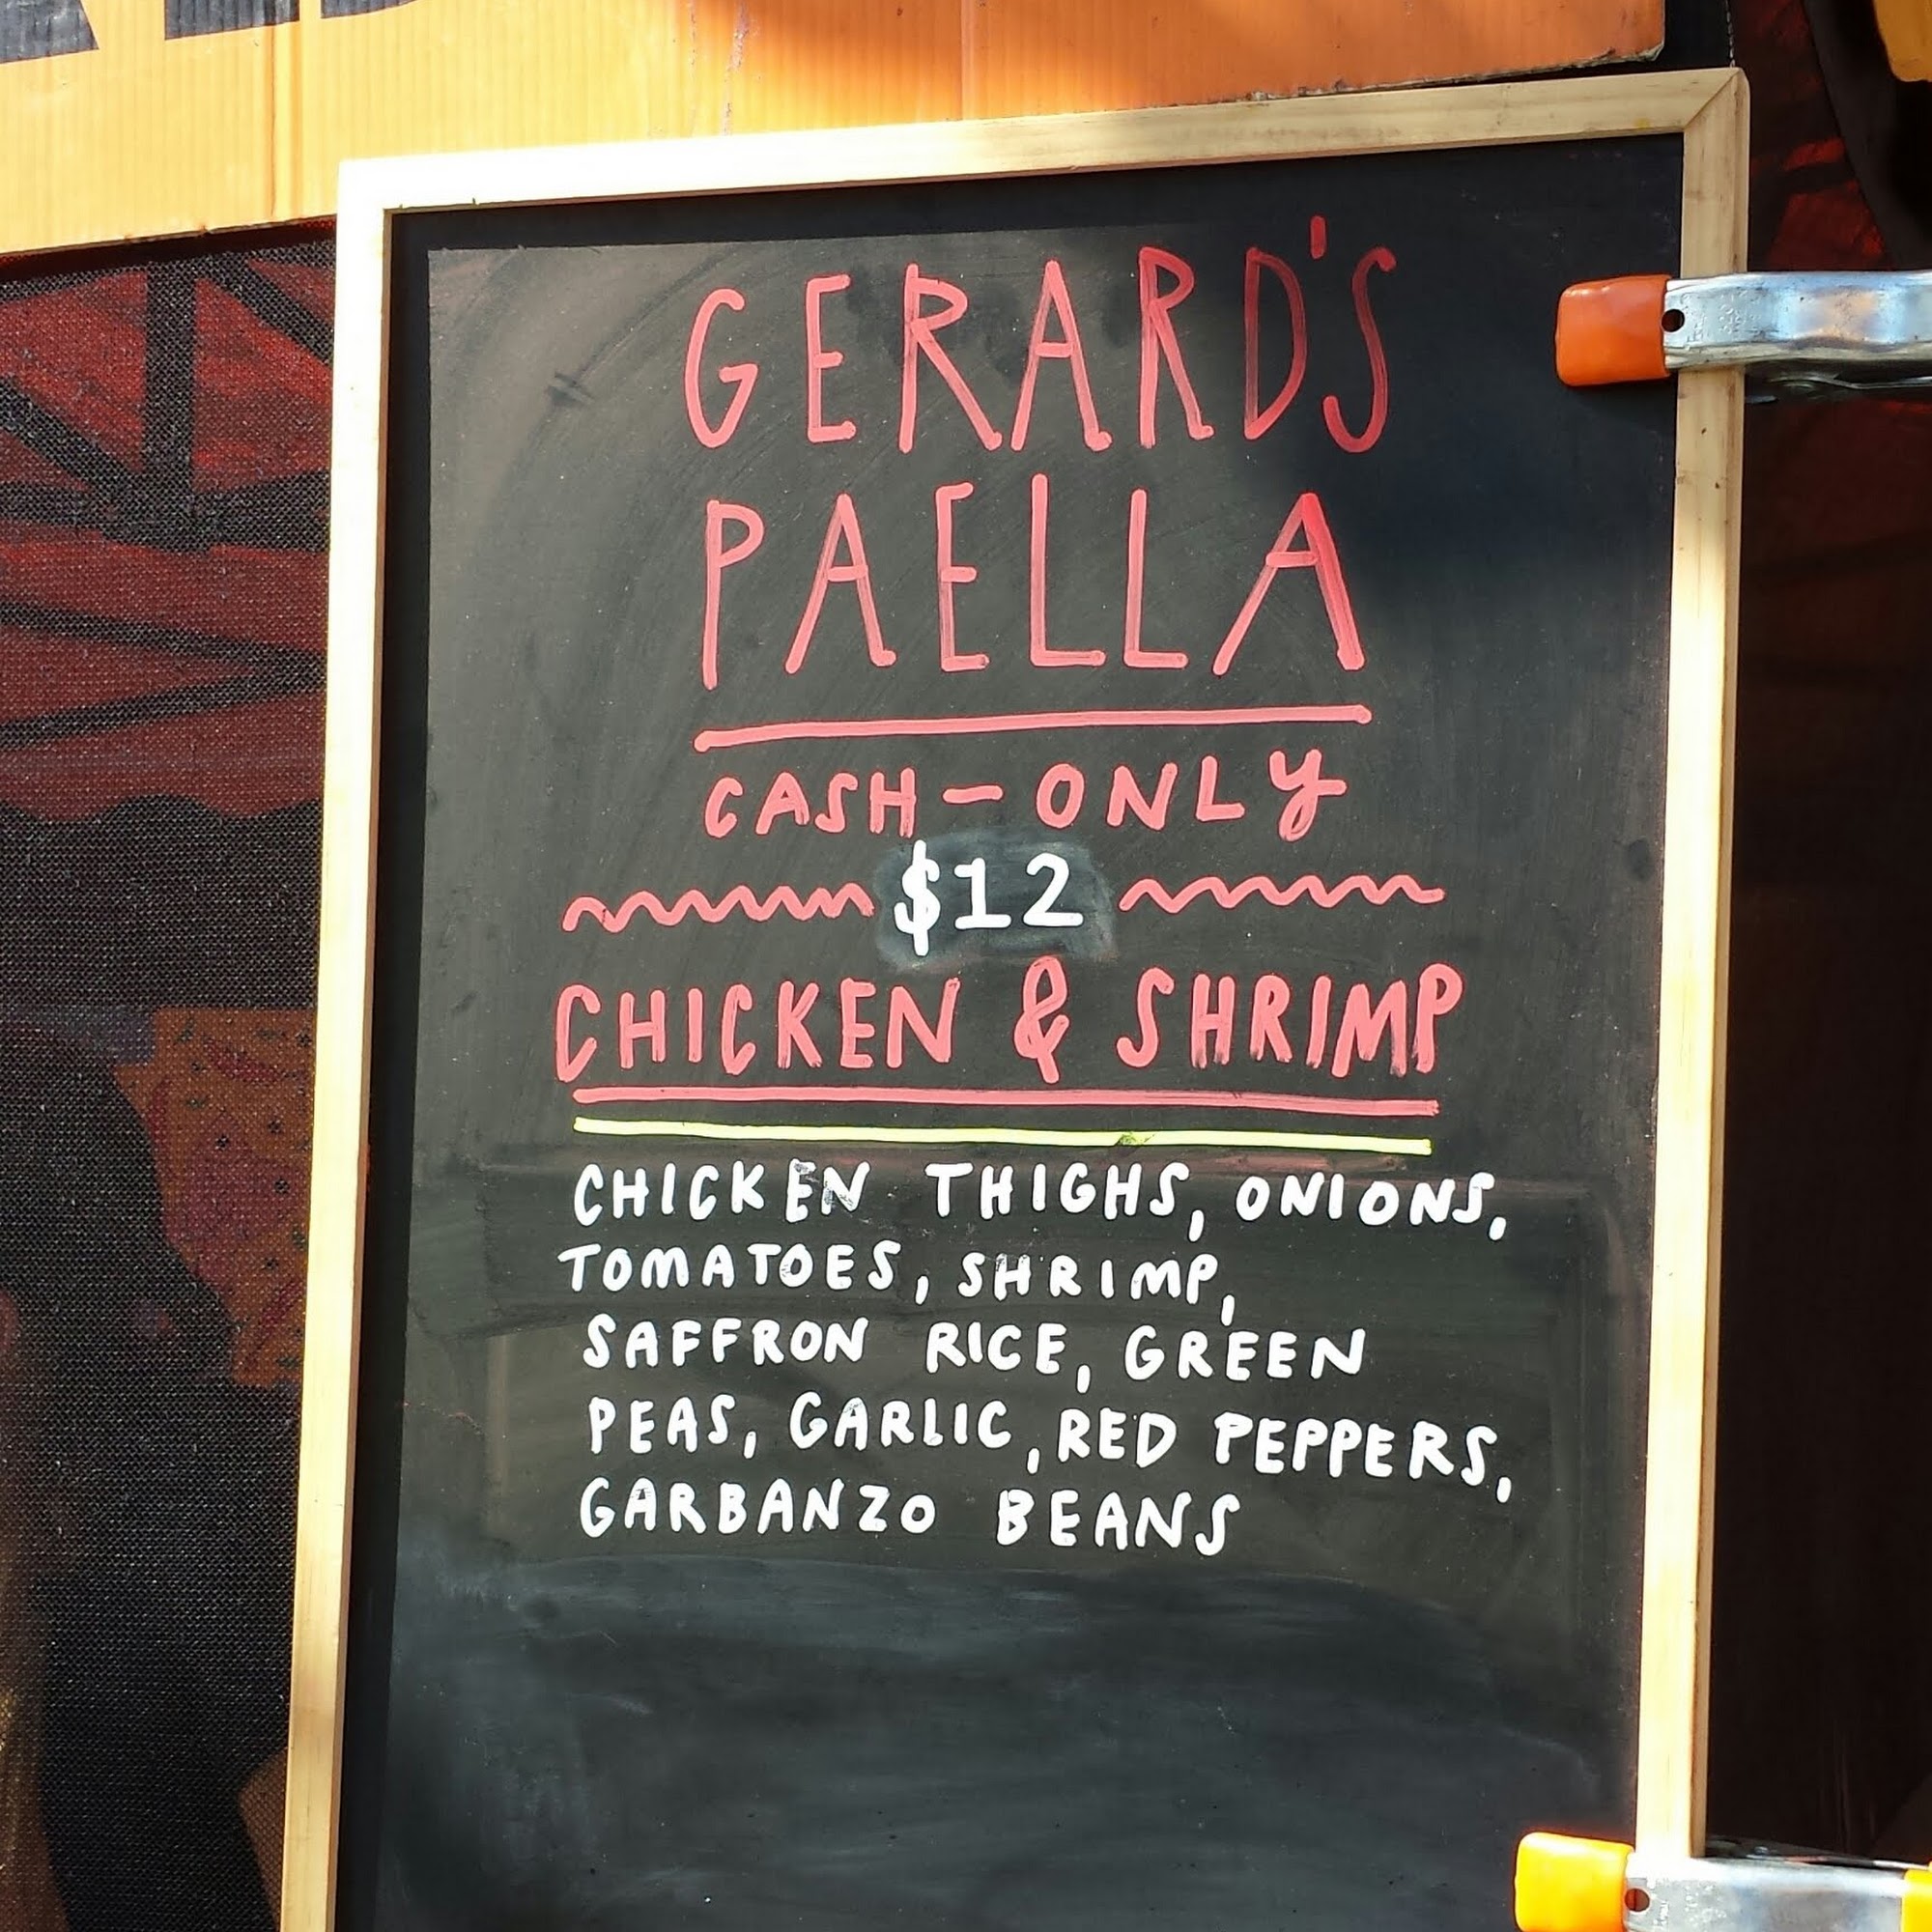 GERARD'S
PAELLA
CASH-ONLY
$12
CHICKEN & SHRIMP
CHICKEN THIGHS, ONIONS,
TOMATOES, SHRIMP,
SAFFRON RICE, GREEN
PEAS, GARLIC, RED PEPPERS,
GARBANZO BEANS